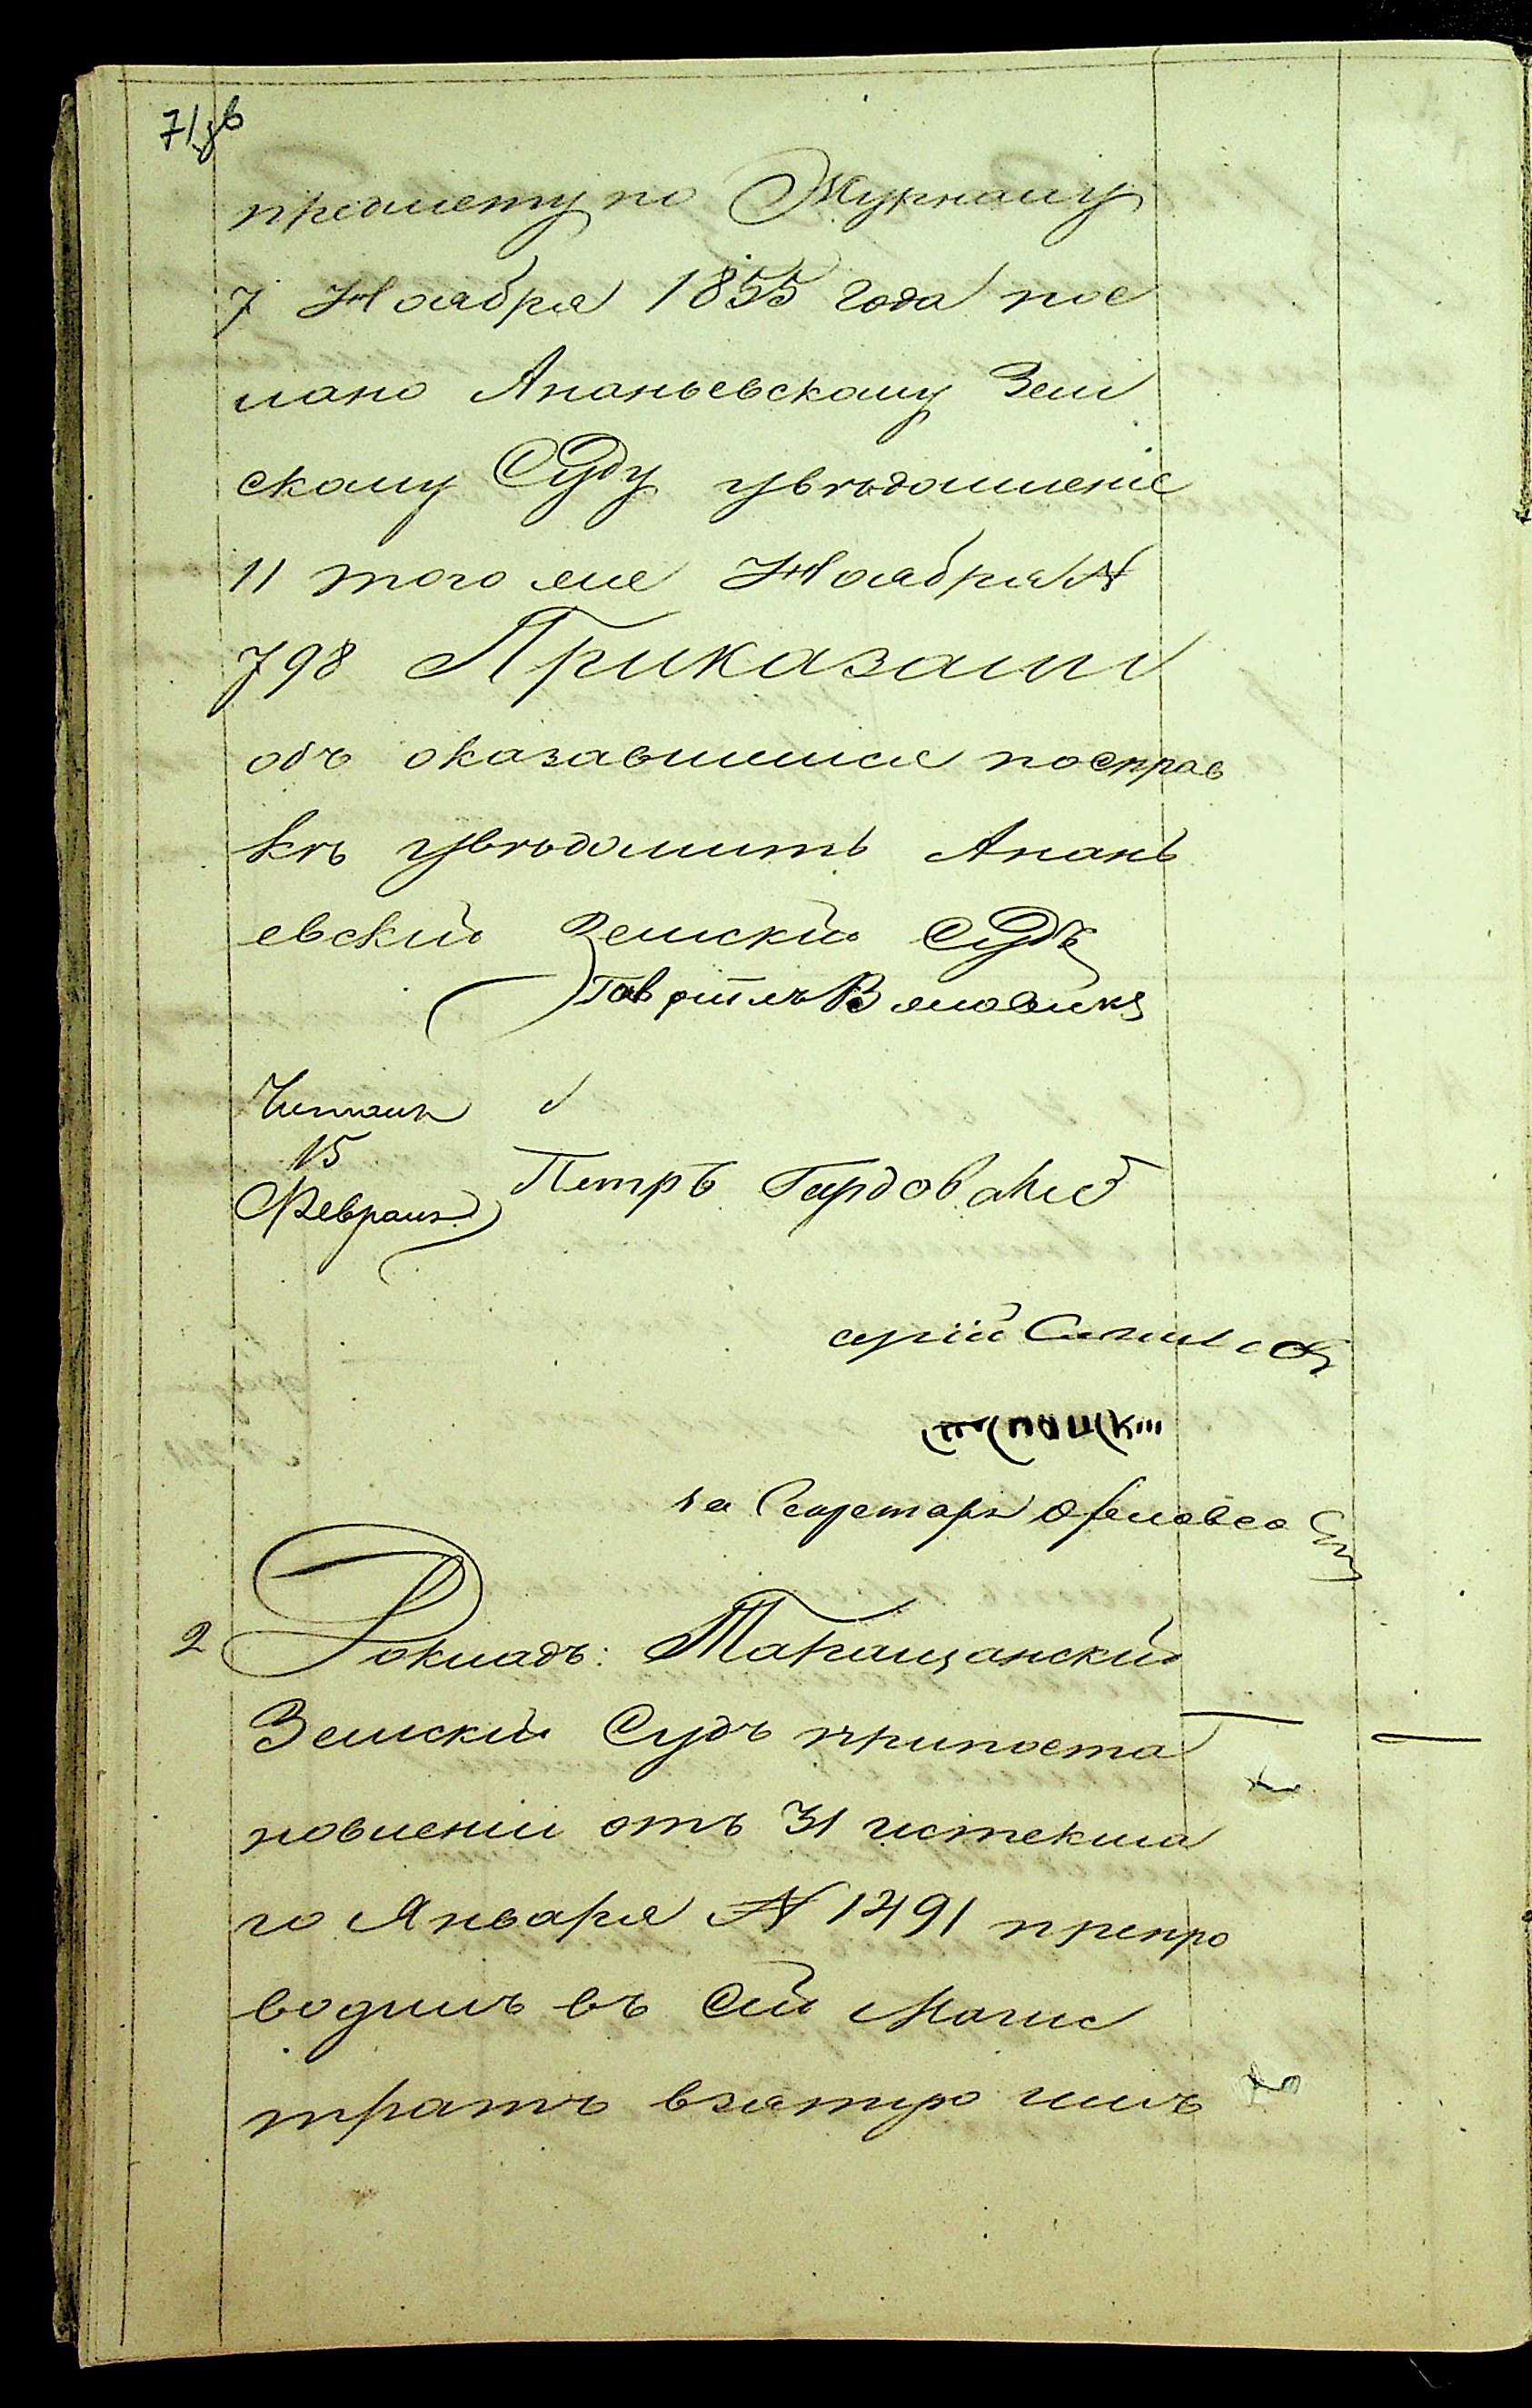 71зв
предмету по Журналу
7 Ноября 1855 года пос
лано Ананьевскому Зем
скому Суду увѣдомленіе
11 того же Ноября №
798 Приказали
объ оказавшемся посправ
кѣ увѣдомить Анань
евский Земский Судъ
Гавріилъ
Читалъ
15
Февраля
Петръ
за Секретаря
2 Докладъ: Таращанский
Земский Судъ припоста
новленіи отъ 31 истекша
го Января № 1491 препро
водилъ въ Сей Магис
тратъ взятую имъ